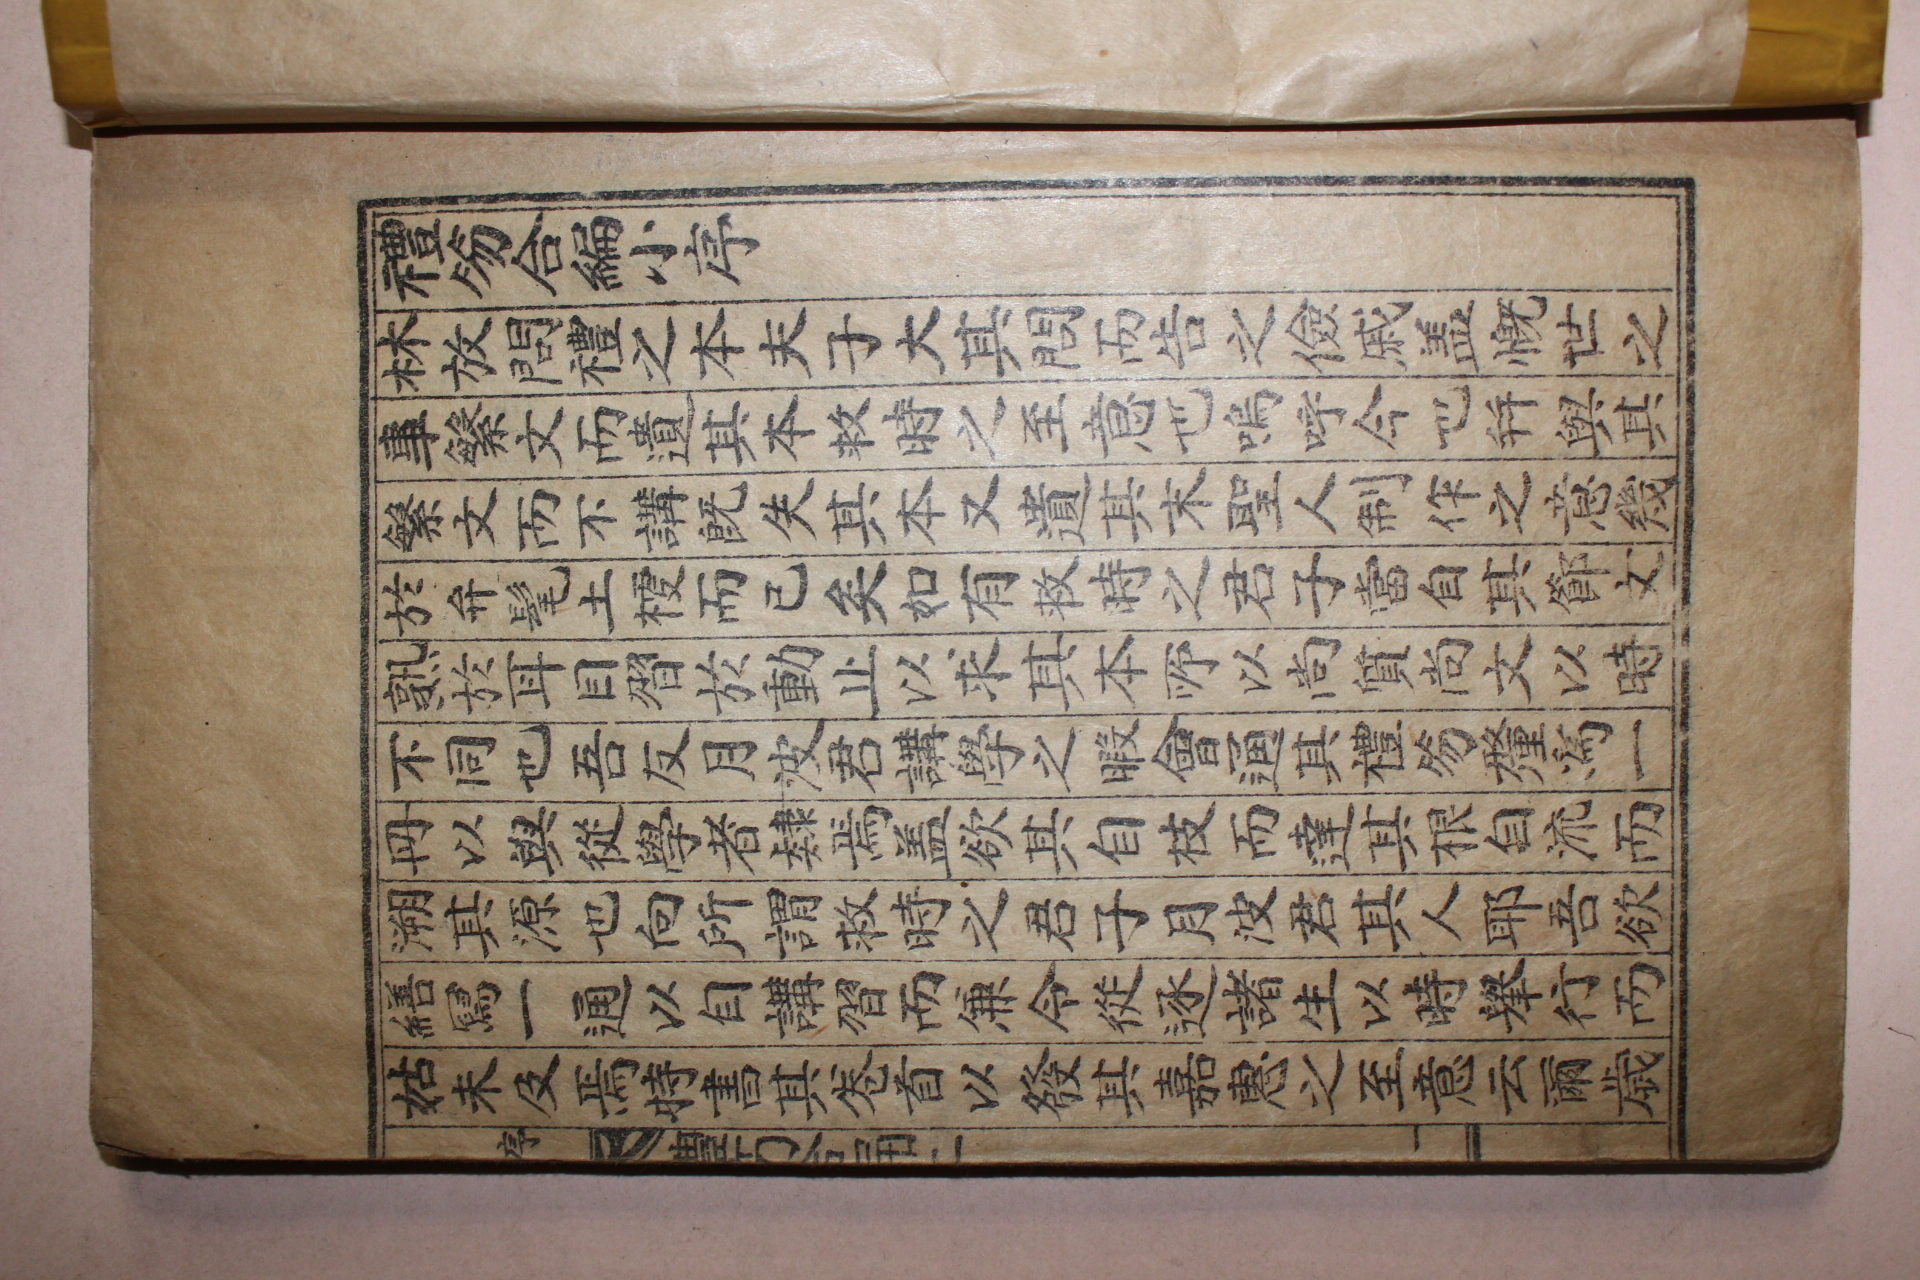 禮笏合編小序
林放問禮之本夫子大其問而告之儉戚盖慨世之
事繁文而遺其本救時之至意也嗚呼今也幷與其
繁文而不講旣失其本又遺其末聖人制作之意幾
於弁髦土梗而已矣如有救時之君子當自其節文
熟於耳目習於動止以求其本所以尚質尚文以時
不同也吾友月波君講學之暇會通其禮笏釐爲一
冊以與從學者隷焉盖欲其自枝而達其根自流而
溯其源也向所謂救時之君子月波君其人耶吾欲
繕寫一通以自講習而兼令從遊諸生以時擧行而
姑未及焉特書其卷首以發其嘉惠之至意云爾歲
序
一